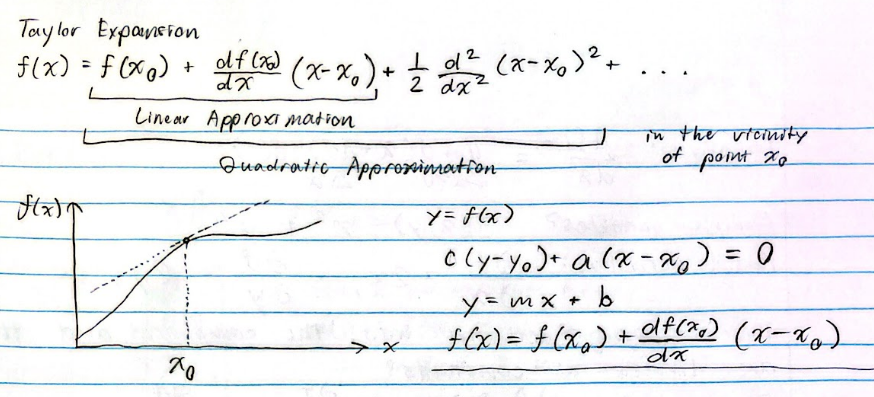 Taylor Expansion
f(x) = f(x₀) + df(x₀)/dx (x-x₀) + 1/2 d²/dx² (x-x₀)² + ...
Linear Approximation
Quadratic Approximation
in the vicinity
of point x₀
f(x)
x
x₀
y = f(x)
c(y-y₀) + a(x-x₀) = 0
y = mx + b
f(x) = f(x₀) + df(x₀)/dx (x-x₀)